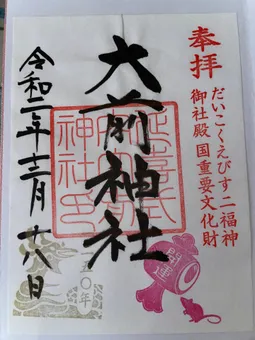 奉拝
だいこくえびす二福神
御社殿 国重要文化財
大前神社
延喜式内
神社印
令和二年十二月廿八日